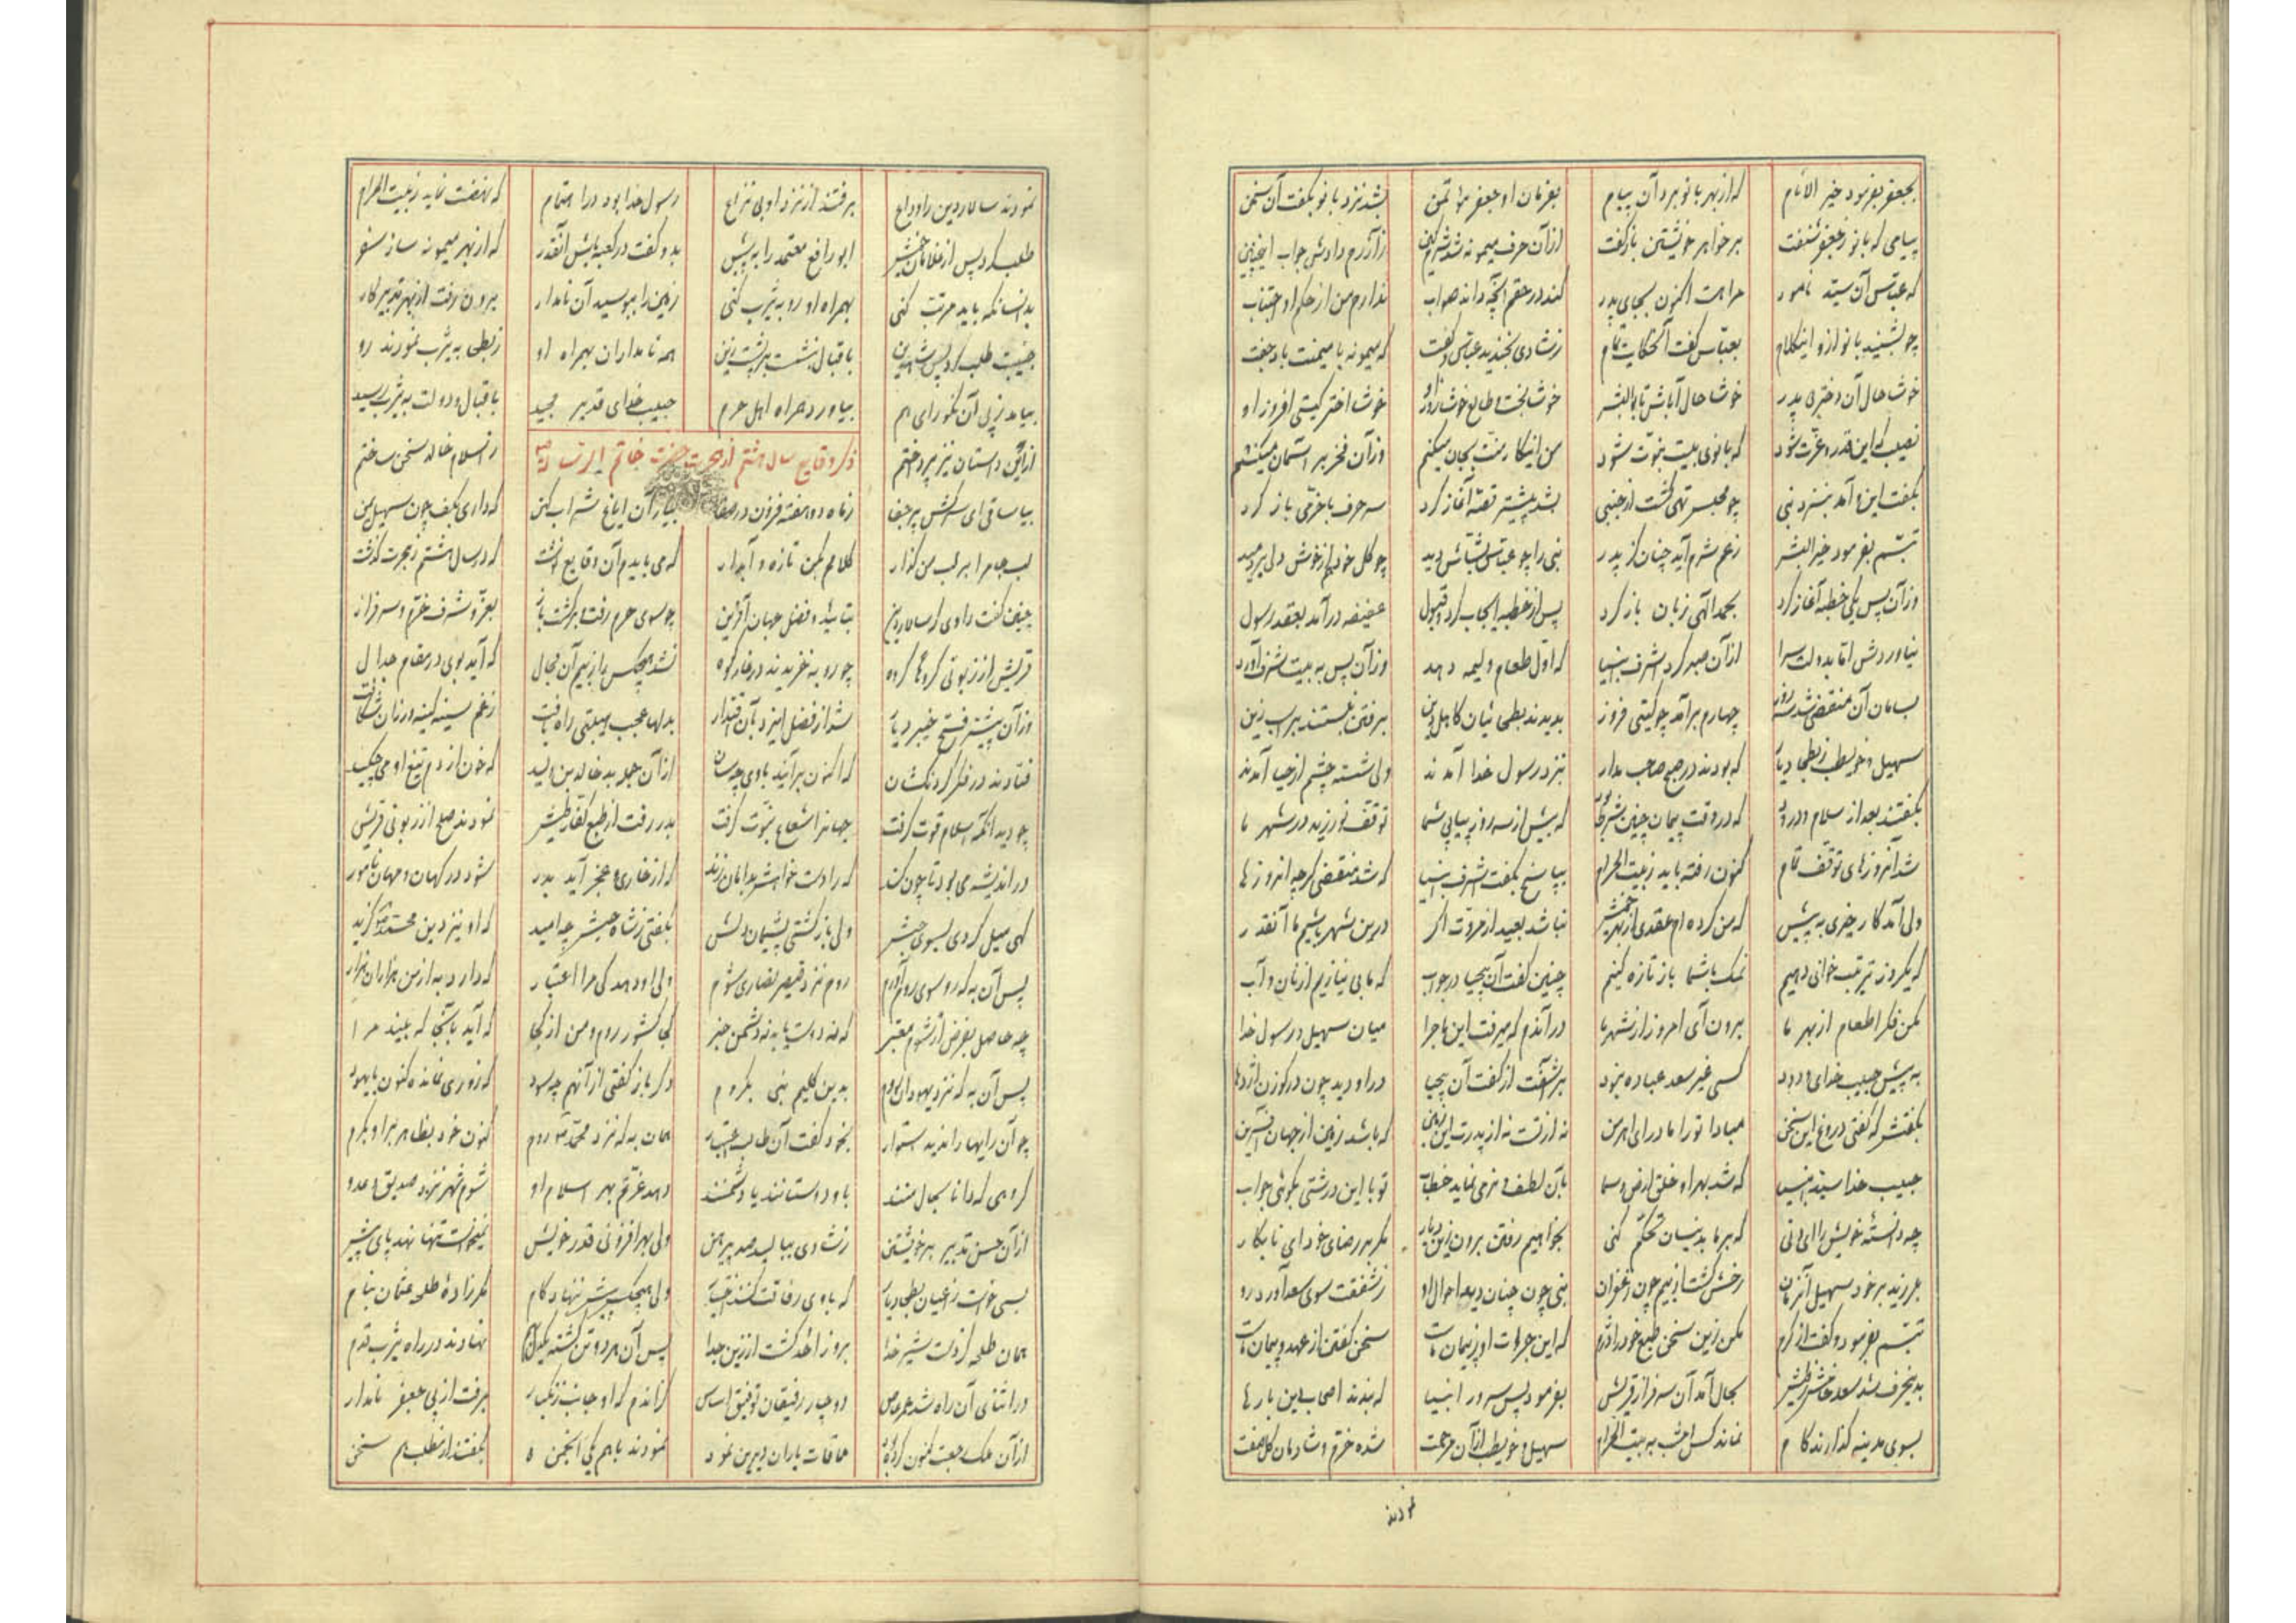 بجعفر بفرمود خیر الانام که از بهر بانو برد آن پیام بفرمان او جعفر مؤتمن بشد نزد بانو بگفت آن سخن
پیامی که بانو ز جعفر شنفت بر خواهر خویشتن باز گفت از آن حرف میمونه شد شرمگین ز آزرم دادش جواب اینچنین
که عباس آن سید نامور مرا هست اکنون بجای پدر کند در حقم آنچه داند صواب ندارم من از حکم او اجتناب
چو بشنید بانو ازو اینکلام بعباس گفت آنحکایت تمام ز شادی بخندید عباس و گفت که میمونه با میمنت باد جفت
خوشا حال آن دختر و پدر خوشا حال آباش تا بوالبشر خوشا بخت و طالع خوشا روز او خوشا اختر گیتی افروز او
نصیب که این قدر و عزت شود که بانوی بیت نبوت شود من اینکار منت بجان میکنم وز آن فخر بر آسمان میکنم
بگفت این و آمد بنزد نبی چو مجلس تهی گشت از اجنبی بشد پیشتر قصه آغاز کرد سر حرف با خرمی باز کرد
تبسم بفرمود خیر البشر ز عم شرم آید چنان کز پدر نبی را چو عباس بشاش دید چو گل خود هم از خوش دلی بردمید
وز آن پس یکی خطبه آغاز کرد بحمد الهی زبان باز کرد پس از خطبه ایجاب کرد و قبول عفیفه درآمد بعقد رسول
نیاوردش اما بدولت سرا از آن صبر کرد اشرف انبیا که اول طعام ولیمه دهد وز آن پس به بیت شرف آورد
بسامان آن منقضی شد سه روز چهارم برآمد چو گیتی فروز بدیدند بطحائیان کاهل دین برفتن نبستند بر اسب زین
سهیل و حویطب ز بطحا دیار که بودند در صلح صاحب مدار بنزد رسول خدا آمدند ولی شسته چشم از حیا آمدند
بگفتند بعد از سلام و درود که در وقت پیمان چنین شرط بود که بیش از سه روز پیاپی شما توقف نورزید در شهر ما
شد آنروزهای توقف تمام کنون رفته باید ز بیت الحرام بپاسخ بگفت اشرف انبیا که شد منقضی گرچه آنروزها
ولی آمد کار خیری به پیش که من کرده ام عقدی از بهر خویش نباشد بعید از مروت اگر درین شهر باشیم ما آنقدر
که یکروز ترتیب خوانی دهیم نمک با شما باز تازه کنیم چنین گفت آن بیحیا در جواب که ما بی نیازیم از نان و آب
مکن فکر اطعام از بهر ما برون آی امروز از شهر ما در آندم که میرفت این ماجرا میان سهیل و رسول خدا
به پیش حبیب خدای ودود کسی غیر سعد عباده نبود برآشفت از گفت آن بیحیا در او دید چون در گوزن اژدها
بگفتش که گفتی دروغ این سخن مبادا تو را مادر ای اهرمن نه از تست نه از پدرت این زمین که باشد زمین از جهان آفرین
حبیب خدا سید انبیا که شد بهر او خلق ارض و سما بآن لطف و نرمی نماید خطاب تو با این درشتی بگوئی جواب
چه دانسته خویش را ای دنی که بر ما بدینسان تحکم کنی بخواهیم رفتن برون زین دیار مگر بر رضای خود ای نابکار
بلرزید بر خود سهیل آنزمان رخش گشت از بیم چون زعفران نبی چون چنان دید احوال او ز شفقت سوی سعد آورد رو
تبسم بفرمود و گفت از کرم مکن زین سخن طبع خود را دژم که این جرات او ز پیمان ماست سخن گفتن از عهد و پیمان ماست
بدینحرف شد سعد خامش ز طیش بحال آمد آن سرفراز قریش بفرمود پس سرور انبیا که بندند اصحاب دین بارها
بسوی مدینه گذارند گام نماند کس امشب به بیت الحرام سهیل و حویطب از آن مرحمت شده خرم و شادمان گل صفت
نمودند
نمودند سالار دین را وداع برفتند از نزد او بی نزاع رسول خدا بود در اهتمام که نهضت نماید ز بیت الحرام
طلب کرد پس از غلامان خویش ابو رافع معتمد را به پیش بدو گفت در کعبه باش آنقدر که از بهر میمونه ساز سفر
بدانسانکه باید مرتب کنی بهمراه او رو به یثرب کنی زمین را ببوسید آن نامدار برون رفت از بهر تدبیر کار
جنیبت طلب کرد پس شاه دین باقبال بنشست بر پشت زین همه نامداران بهمراه او ز بطحی به یثرب نمودند رو
بیامد ز پی آن نکو رای هم بیاورد همراه اهل حرم حبیب خدای قدیر مجید باقبال و دولت به یثرب رسید
ذکر وقایع سال هشتم از هجرت حضرت خاتم
از این داستان نیز پرداختم ز اسلام خالد سخن ساختم
بیا ساقی ای سرکش پر جفا ز ماه دو هفته فزون در صفا بیار آن ایاغ شراب کهن که داری بکف چون سهیل یمن
لب جام را بر لب من گذار کلامم بکن تازه و آبدار که می بایدم آن وقایع نوشت که در سال هشتم ز هجرت گذشت
چنین گفت راوی که سالار دین بتایید و فضل جهان آفرین چو سوی حرم رفت و برگشت باز بعز و شرف خرم و سرفراز
قریش از زبونی گروها گروه چو روبه خزیدند در غار کوه نشد هیچکس را ز بیم آن مجال که آید بوی در مقام جدال
وز آن پیشتر فتح خیبر دیار شد از فضل ایزد بآن اقتدار بدلها عجب هیبتی راه یافت
فتادند در فکر گردنکشان که اکنون برآیند با وی چه سان از آن جمله بد خالد بن ولید که خون از دم تیغ او می چکید
چو دید آنکه اسلام قوت گرفت جهانرا شعاع نبوت گرفت بدر رفت از طبع کفار طیش نمودند صلح از زبونی قریش
در اندیشه می بود تا چون کند
گهی میل کردی بسوی حبش ولی بازگشتی پشیمان دلش بگفتی ز شاه حبش چه امید که او نیز دین محمد گزید
پس آن به که رو سوی روم آورم روم نزد قیصر نصاری شوم ولی او دهد کی مرا اعتبار که دارد به از من هزاران هزار
چه حاصل بفرض ار شوم معتبر که نه دوست یابد نه دشمن خبر کجا کشور روم و من از کجا که آید بآنجا که بیند مرا
پس آن به که نزد یهودان روم بدین کلیم نبی بگروم دگر باز گفتی از آنهم چه سود که زوری نمانده کنون با یهود
چو آن رایها را ندید استوار بخود گفت آن طالب اعتبار همان به که نزد محمد روم کنون خود بظاهر بر او بگروم
گروهی که دانا بحال منند با و دوستانند یا دشمنند دهد عزتم بهر اسلام او شوم شهره نزد صدیق و عدو
از آن حسن تدبیر بر خویشتن ز شادی ببالید صد پیرهن ولی بهر افزونی قدر خویش نمیخواست تنها نهد پای پیش
بسی خواست ز اعیان بطحا دیار که با وی رفاقت کنند اختیار ولی هیچکس پیش ننهاد گام مگر زاده طلحه عثمان بنام
همان طلحه کز دست شیر خدا بروز احد گشت از زین جدا پس آن هر دو تن گشته نهادند در راه یثرب قدم
در اثنای آن راه شد عمرو عاص دوچار رفیقان توفیق اساس کز آندم که او جانب زنگبار برفت از پی جعفر نامدار
از آن ملک رجعت کنون کرده بود ملاقات یاران دیرین نمود نمودند باهم یکی انجمن بگفتند از مطلب هم سخن